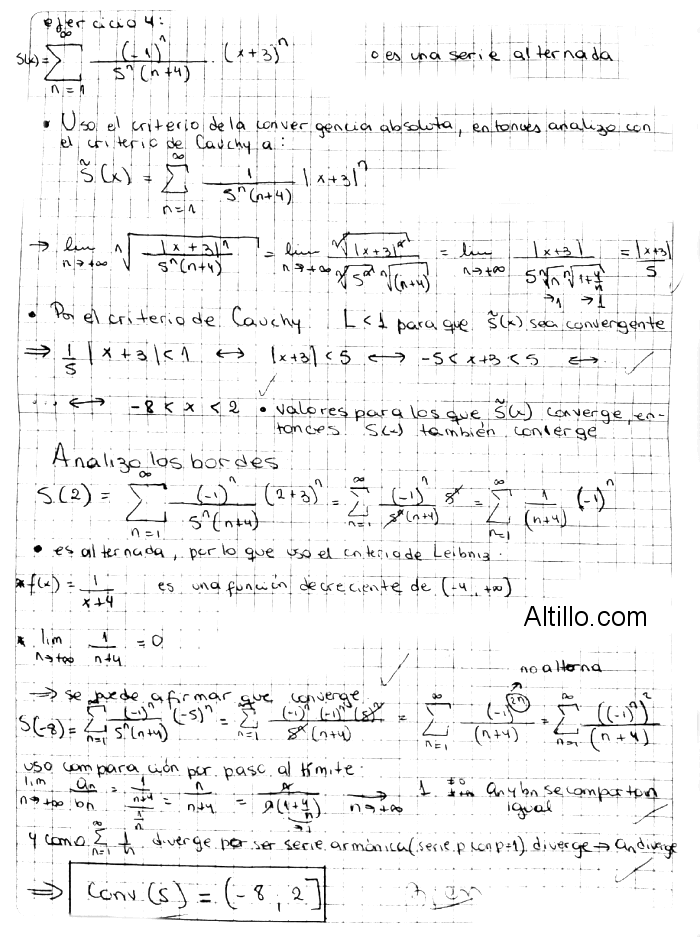 ejercicio 4:
S(x) = ∑_{n=1}^{∞} (-1)^n / (5^n (n+4)) · (x+3)^n o es una serie alternada
• Uso el criterio de la convergencia absoluta, entonces analizo con
el criterio de Cauchy a:
S̃(x) = ∑_{n=1}^{∞} 1 / (5^n (n+4)) |x+3|^n
→ lim_{n→+∞} ⁿ√(|x+3|^n / (5^n (n+4))) = lim_{n→+∞} ⁿ√(|x+3|^n) / (ⁿ√(5^n) ⁿ√(n+4)) = lim_{n→+∞} |x+3| / (5 ⁿ√n ⁿ√(1+4/n)) = |x+3| / 5
→1 →1
• Por el criterio de Cauchy L < 1 para que S̃(x) sea convergente
⇒ 1/5 |x+3| < 1 ↔ |x+3| < 5 ↔ -5 < x+3 < 5 ↔ ✓
... ↔ -8 < x < 2 ✓ • valores para los que S̃(x) converge, en-
tonces S(x) también converge
Analizo los bordes
S(2) = ∑_{n=1}^{∞} (-1)^n / (5^n (n+4)) (2+3)^n = ∑_{n=1}^{∞} (-1)^n / (5^n (n+4)) 5^n = ∑_{n=1}^{∞} 1 / (n+4) (-1)^n
• es alternada, por lo que uso el criterio de Leibniz.
* f(x) = 1 / (x+4) es una función decreciente de (-4, +∞)
Altillo.com
* lim_{n→+∞} 1 / (n+4) = 0
no alterna
⇒ se puede afirmar que converge ✓
S(-8) = ∑_{n=1}^{∞} (-1)^n / (5^n (n+4)) (-5)^n = ∑_{n=1}^{∞} (-1)^n (-1)^n (5)^n / (5^n (n+4)) = ∑_{n=1}^{∞} (-1)^{2n} / (n+4) = ∑_{n=1}^{∞} ((-1)^n)^2 / (n+4)
uso comparación por paso al límite:
lim_{n→+∞} an / bn = (1/(n+4)) / (1/n) = n / (n+4) = n / (n(1+4/n)) → n→+∞ 1 ≠0 ≠+∞ an y bn se comportan
→1 igual
y como ∑_{n=1}^{∞} 1/n diverge por ser serie armónica (serie p con p=1) diverge → an diverge ✓
⇒ Conv(S) = (-8, 2]